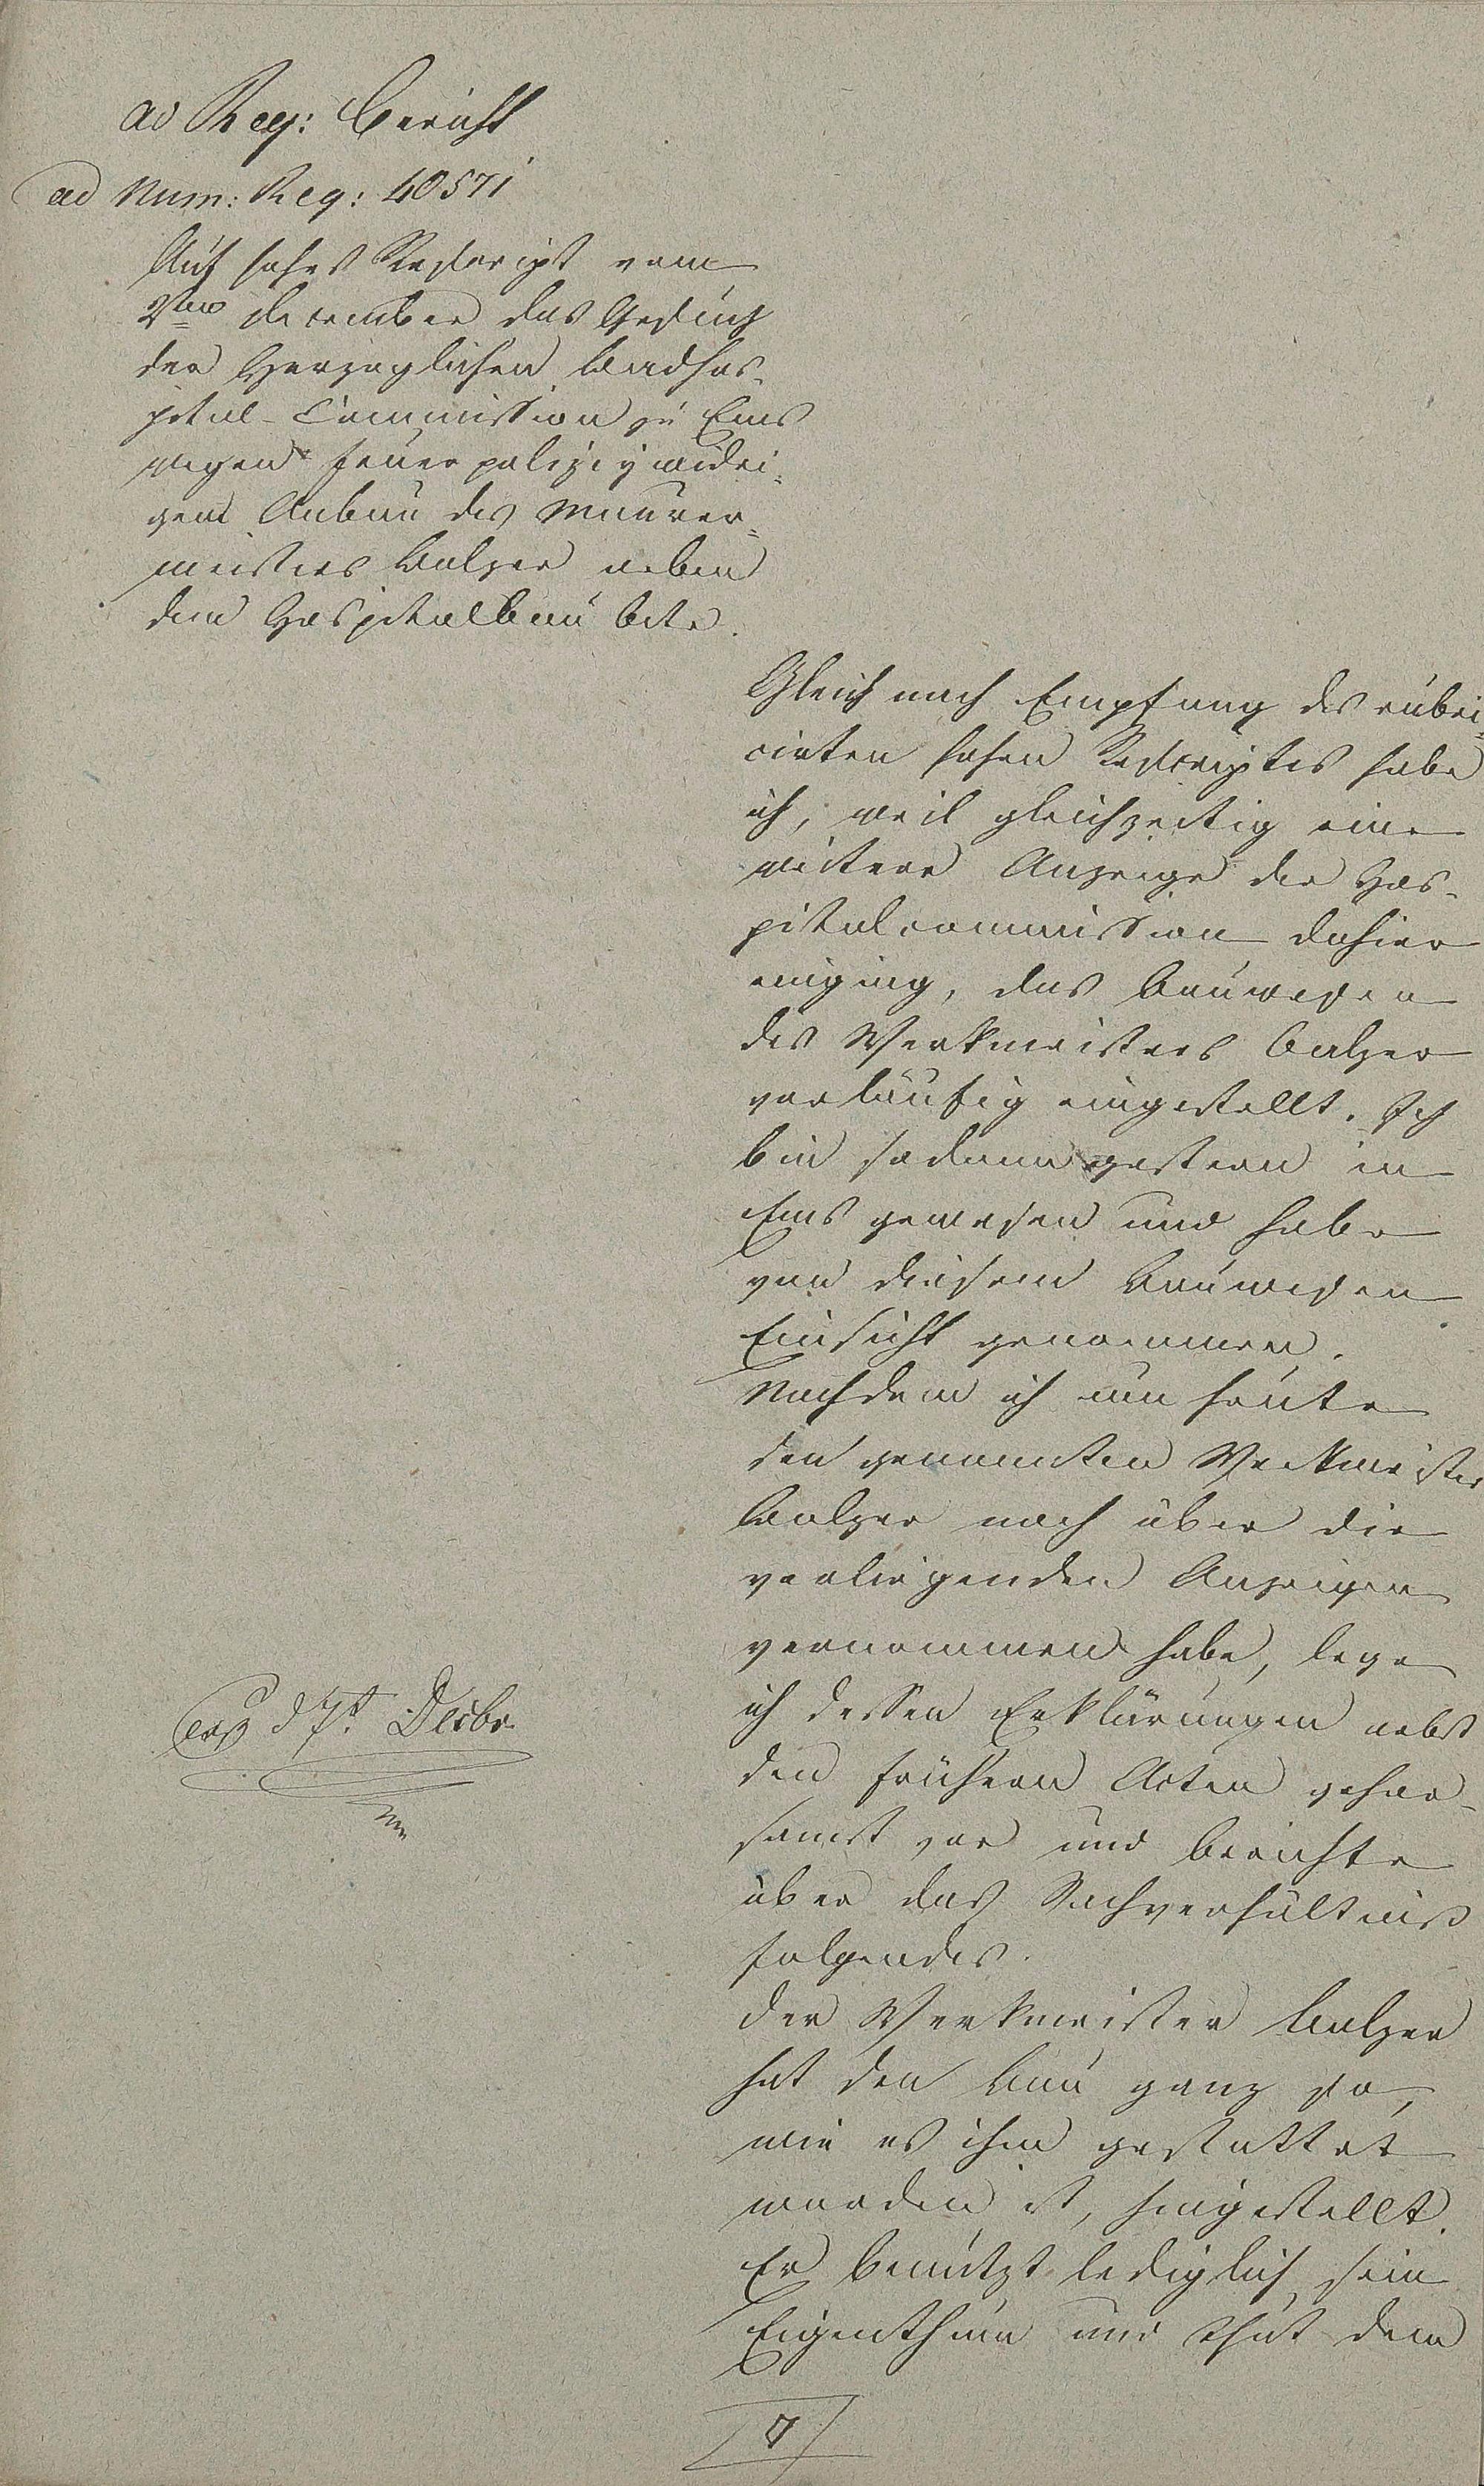 ad Reg: Bericht
ad Num: Reg: 40571
Auf hohes Rescript vom
2ten December das Gesuch
der Herzoglichen Badhos-
pital-Commission zu Ems
wegen feuerpolizeywidri-
gem Anbau des Maurer-
meisters Balzer neben
dem Hospitalbau betr.
Gleich nach Empfang des rubri-
cirten hohen Rescriptes habe
ich, weil gleichzeitig eine
weitere Anzeige der Hos-
pitalcommission dahier
einging, das Bauwesen
des Werkmeisters Balzer
vorläufig eingestellt. Ich
bin sodann gestern in
Ems gewesen und habe
von diesem Bauwesen
Einsicht genommen.
Nachdem ich nun heute
den genannten Werkmeister
Balzer noch über die
vorliegenden Anzeigen
vernommen habe, lege
ich dessen Erklärungen nebst
den frühern Acten gehor-
samst vor und berichte
über das Sachverhältniß
folgendes.
Der Werkmeister Balzer
hat den Bau ganz so,
wie es ihm gestattet
worden ist, hingestellt.
Er benutzt lediglich sein
Eigenthum und thut dem
exp d 7t Decbr.